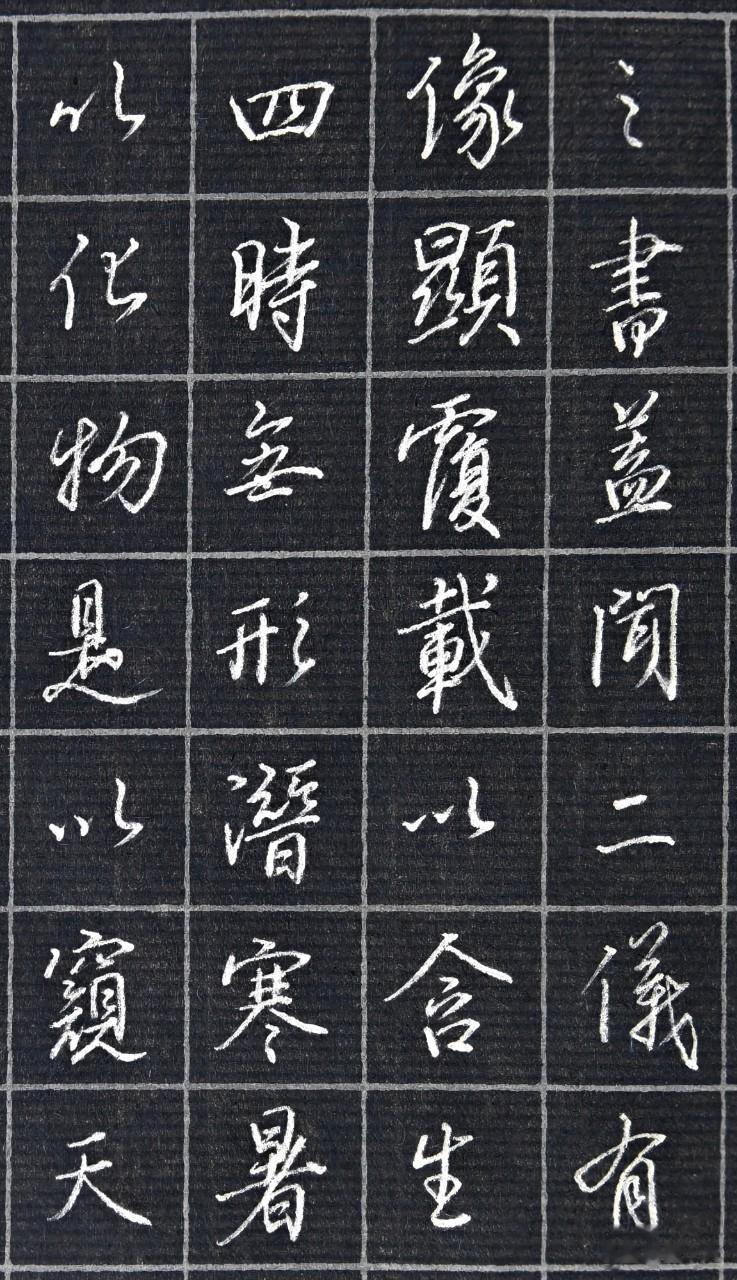 之書蓋聞二儀有
像顯覆載以含生
四時無形潛寒暑
以化物是以窺天